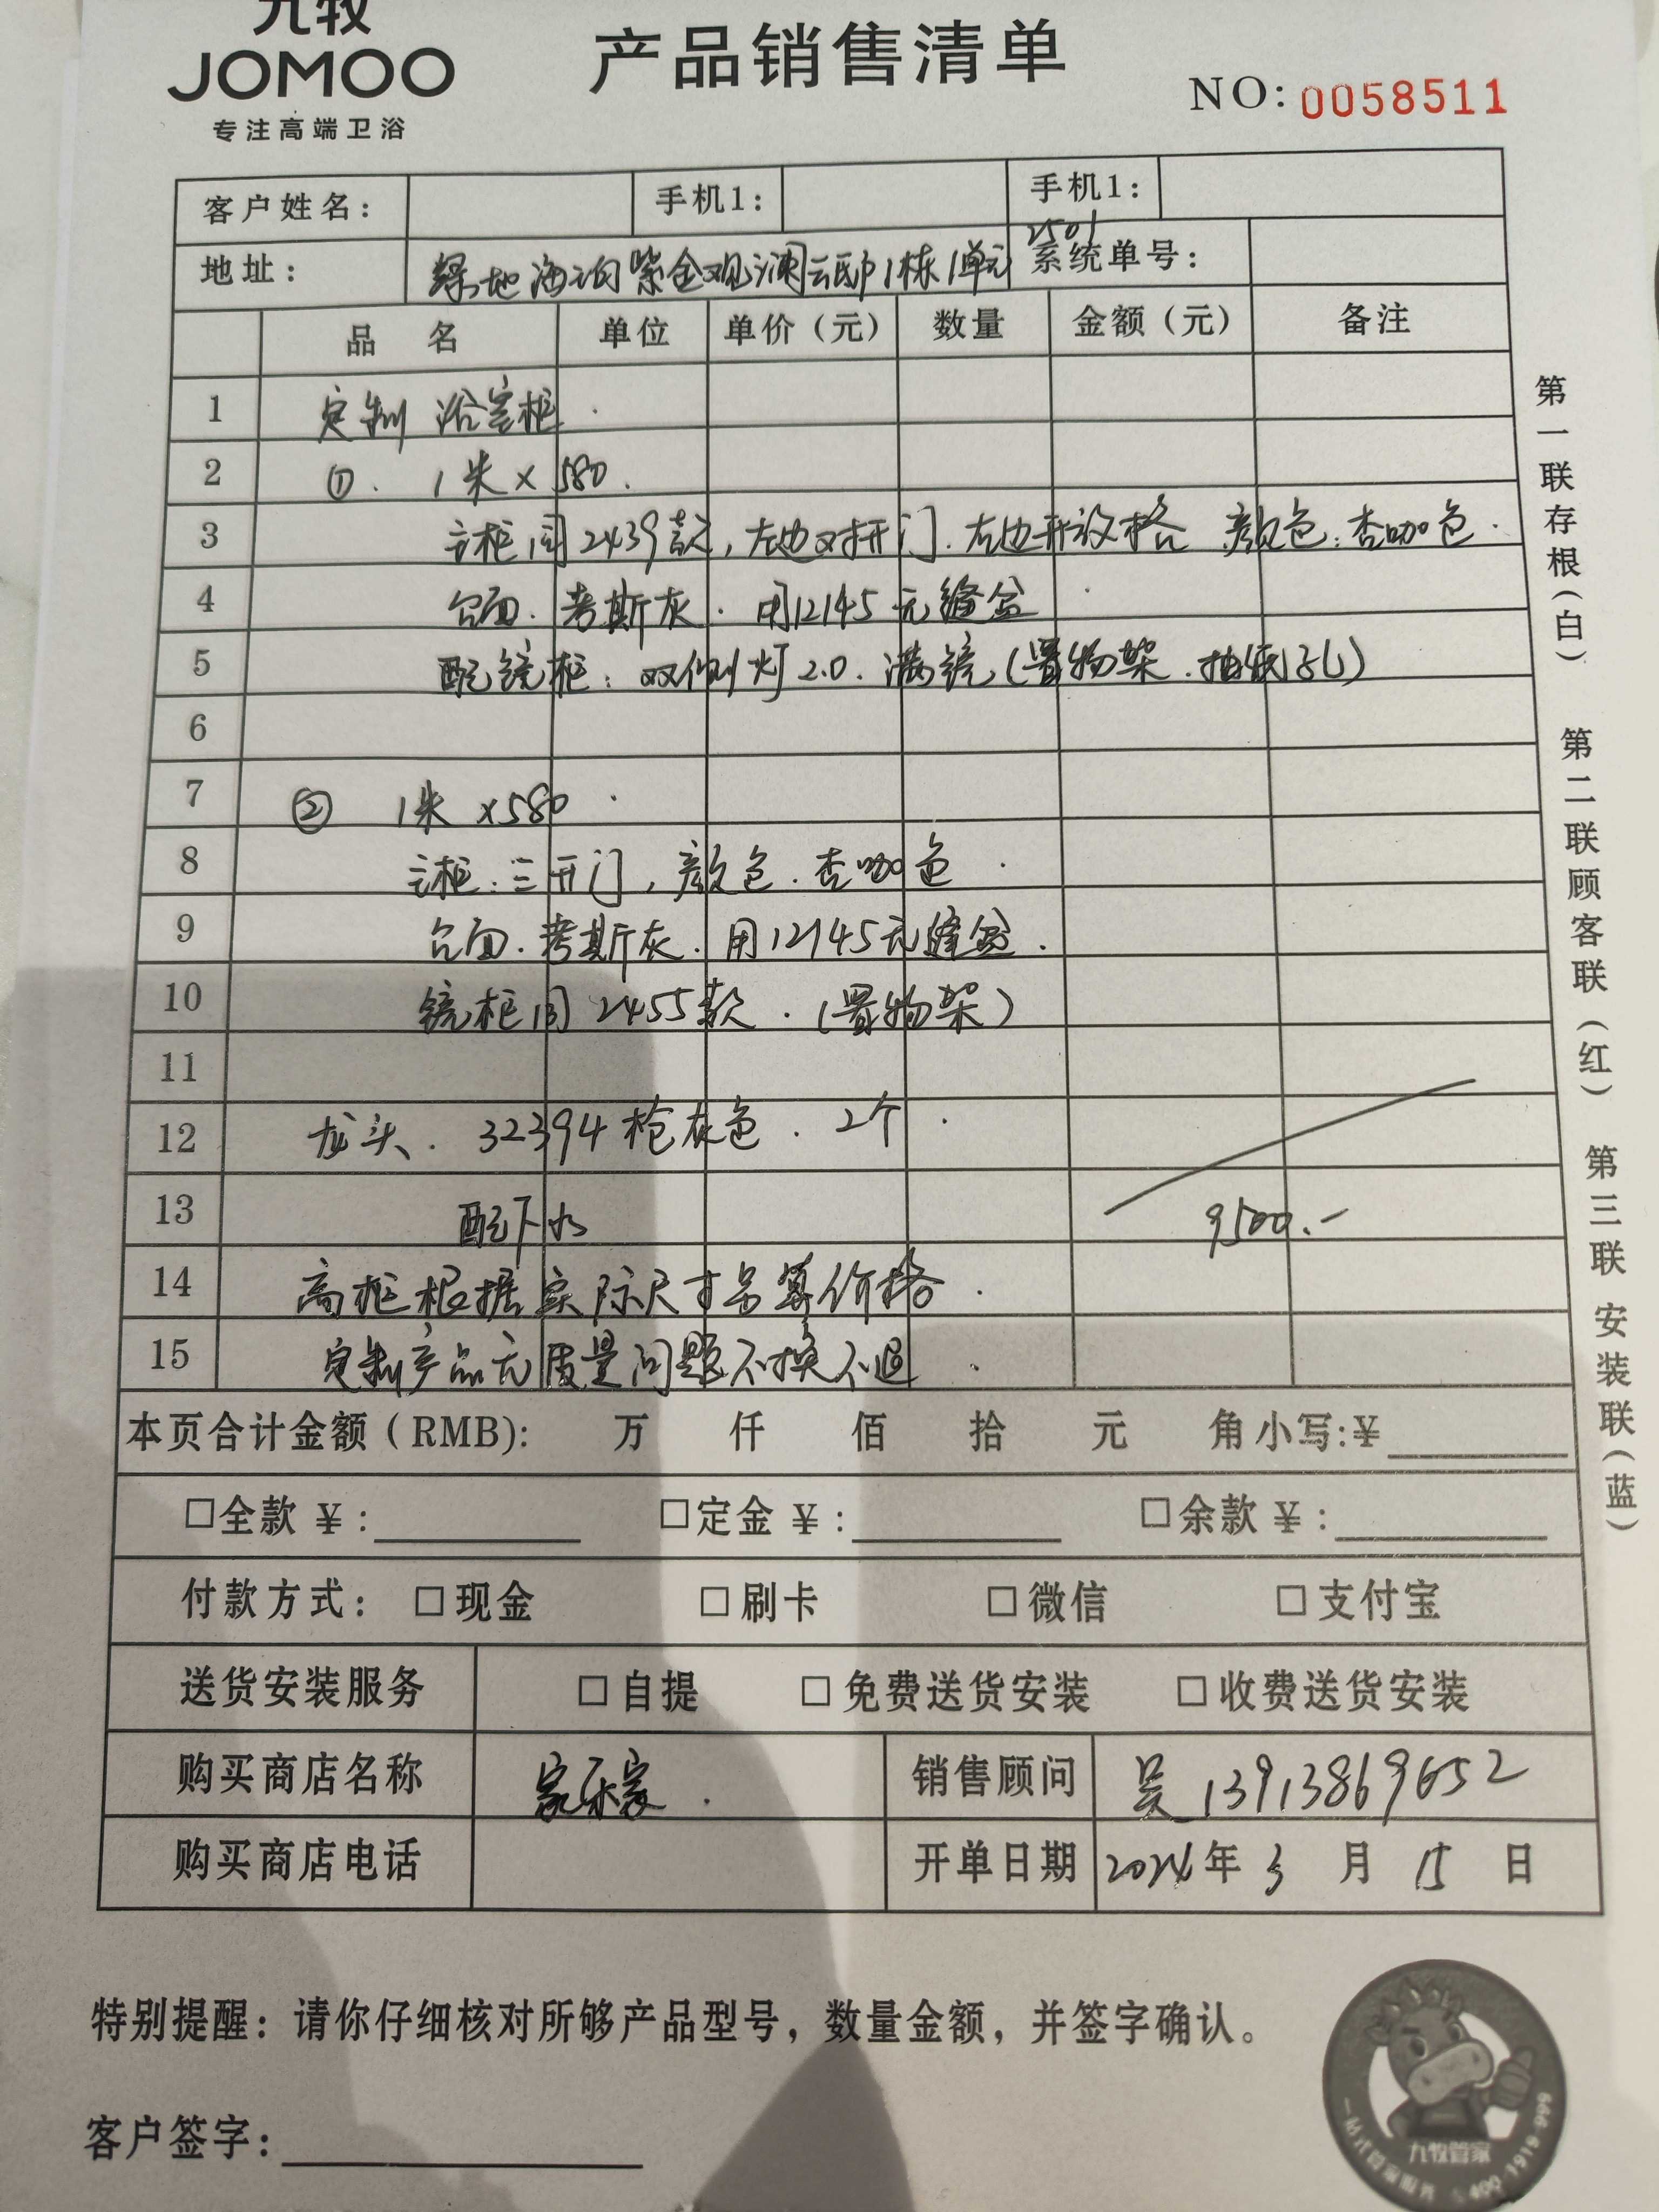 九牧
JOMOO
专注高端卫浴
产品销售清单
NO: 0058511
客户姓名: 手机1: 手机1:
地址: 绿地海泊紫金观澜云邸1栋1单元 2501 系统单号:
品 名 单位 单价(元) 数量 金额(元) 备注
1 定制 浴室柜.
2 ①. 1米×580.
3 主柜同2439款,左边对开门.右边开放格 颜色:杏咖色.
4 台面.考斯灰.用12145无缝盆
5 配镜柜:双侧灯2.0.满镜(置物架.抽纸孔)
6
7 ② 1米×580.
8 主柜:三开门,颜色.杏咖色.
9 台面.考斯灰.用12145无缝盆.
10 镜柜同2455款.(置物架)
11
12 龙头.32394枪灰色.2个.
13 配下水 9500.-
14 高柜根据实际尺寸另算价格.
15 定制产品无质量问题不换不退.
本页合计金额(RMB): 万 仟 佰 拾 元 角 小写:¥
□全款 ¥: □定金 ¥: □余款 ¥:
付款方式: □现金 □刷卡 □微信 □支付宝
送货安装服务 □自提 □免费送货安装 □收费送货安装
购买商店名称 家乐家. 销售顾问 吴 13913869652
购买商店电话 开单日期 2024年3月15日
特别提醒:请你仔细核对所够产品型号,数量金额,并签字确认。
客户签字:
第一联存根(白) 第二联顾客联(红) 第三联安装联(蓝)
九牧管家
一站式管家服务 400-1919-999